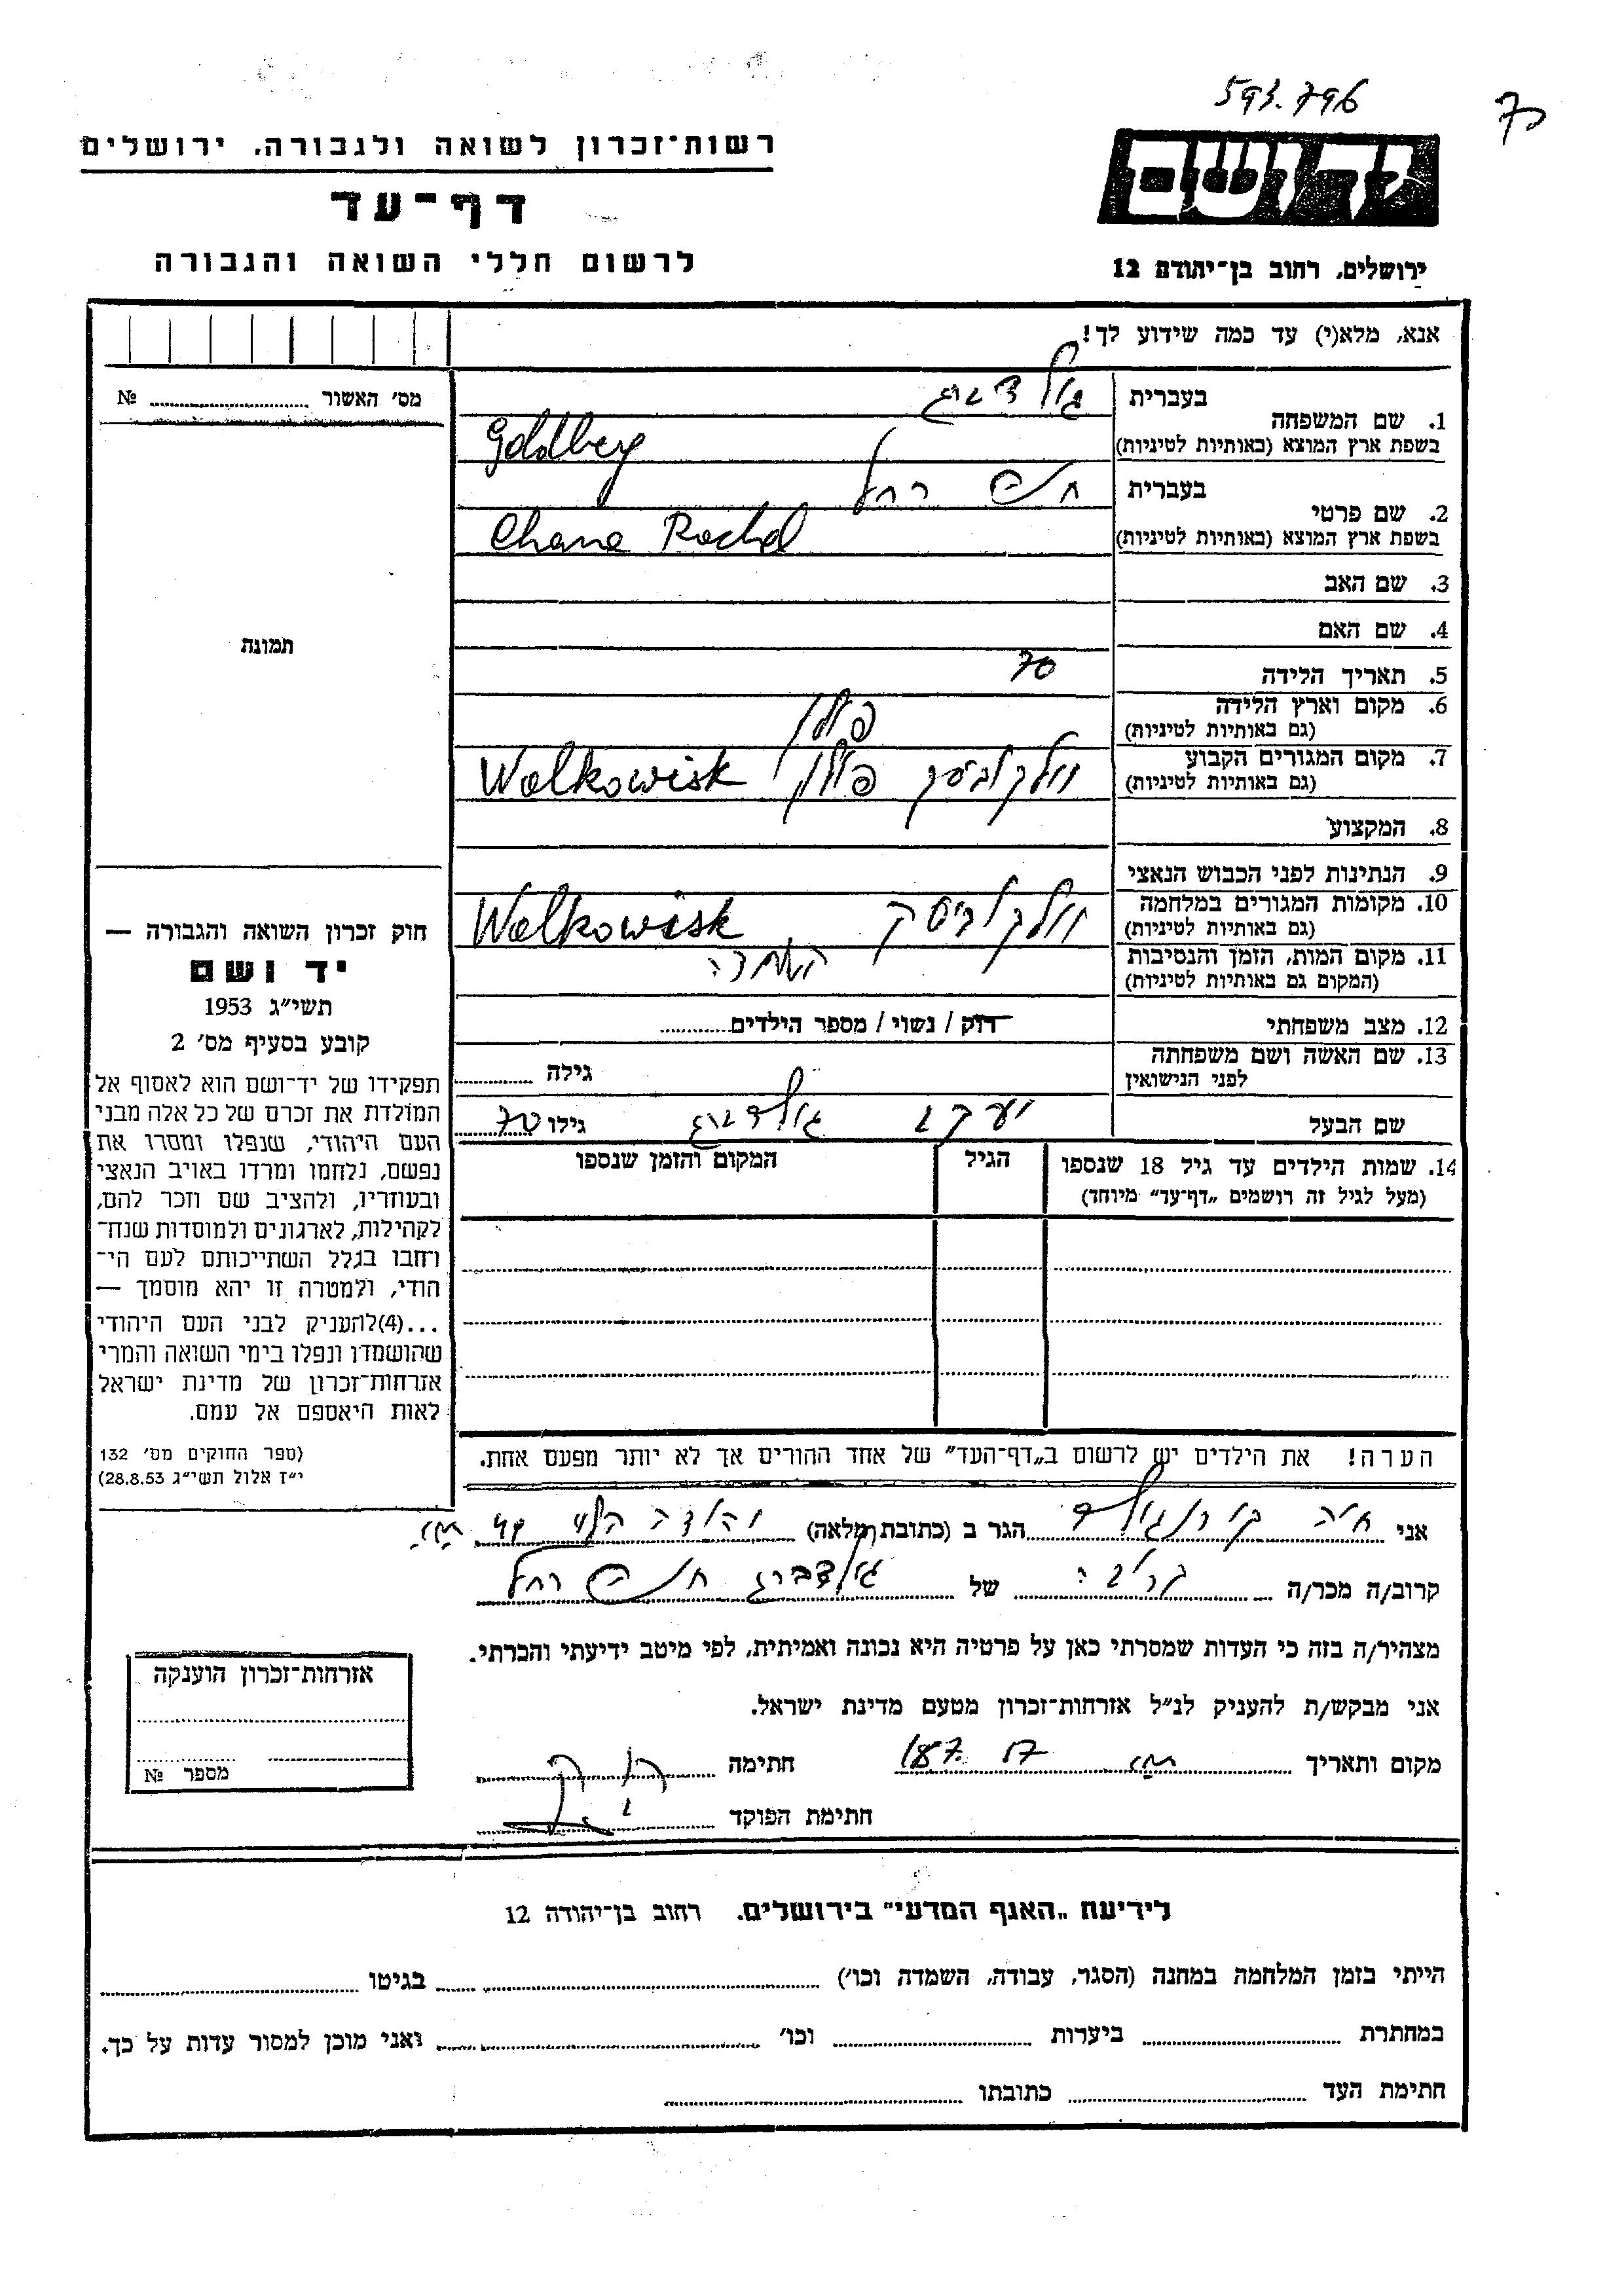 593.796
70
יד ושם
ירושלים, רחוב בן־יהודה 12
רשות־זכרון לשואה ולגבורה, ירושלים
דף־עד
לרשום חללי השואה והגבורה
אנא, מלא(י) עד כמה שידוע לך!
מס׳ האשור № ..........
1. שם המשפחה
בעברית גולדברג
בשפת ארץ המוצא (באותיות לטיניות) Goldberg
2. שם פרטי
בעברית חנה רחל
בשפת ארץ המוצא (באותיות לטיניות) Chana Rachel
3. שם האב
4. שם האם
5. תאריך הלידה 70
6. מקום וארץ הלידה
(גם באותיות לטיניות) פולין
7. מקום המגורים הקבוע
(גם באותיות לטיניות) וולקוביסק פולין Wolkowisk
8. המקצוע
9. הנתינות לפני הכבוש הנאצי
10. מקומות המגורים במלחמה
(גם באותיות לטיניות) וולקוביסק Wolkowisk
11. מקום המות, הזמן והנסיבות
(המקום גם באותיות לטיניות) השמדה
12. מצב משפחתי רוק / נשוי / מספר הילדים..........
13. שם האשה ושם משפחתה
לפני הנישואין גילה ..........
שם הבעל יעקב גולדברג גילו 70
14. שמות הילדים עד גיל 18 שנספו
(מעל לגיל זה רושמים „דף־עד” מיוחד)
הגיל
המקום והזמן שנספו
תמונה
חוק זכרון השואה והגבורה —
יד ושם
תשי״ג 1953
קובע בסעיף מס׳ 2
תפקידו של יד־ושם הוא לאסוף אל
המולדת את זכרם של כל אלה מבני
העם היהודי, שנפלו ומסרו את
נפשם, נלחמו ומרדו באויב הנאצי
ובעוזריו, ולהציב שם וזכר להם,
לקהילות, לארגונים ולמוסדות שנח־
רחבו בגלל השתייכותם לעם הי־
הודי, ולמטרה זו יהא מוסמך —
...(4)להעניק לבני העם היהודי
שהושמדו ונפלו בימי השואה והמרי
אזרחות־זכרון של מדינת ישראל
לאות היאספם אל עמם.
(ספר החוקים מס׳ 132
י״ז אלול תשי״ג 28.8.53)
הערה! את הילדים יש לרשום ב„דף־העד” של אחד ההורים אך לא יותר מפעם אחת.
אני חיה הגר ב (כתובת מלאה) יהודה הלוי
קרוב/ה מכר/ה של גולדברג חנה רחל
מצהיר/ה בזה כי העדות שמסרתי כאן על פרטיה היא נכונה ואמיתית, לפי מיטב ידיעתי והכרתי.
אני מבקש/ת להעניק לנ״ל אזרחות־זכרון מטעם מדינת ישראל.
מקום ותאריך חתימה
חתימת הפוקד
אזרחות־זכרון הוענקה
מספר №
לידיעת „האגף המדעי” בירושלים, רחוב בן־יהודה 12
הייתי בזמן המלחמה במחנה (הסגר, עבודה, השמדה וכו׳) .......... בגיטו ..........
במחתרת .......... ביערות .......... וכו׳ .......... ואני מוכן למסור עדות על כך.
חתימת העד .......... כתובתו ..........